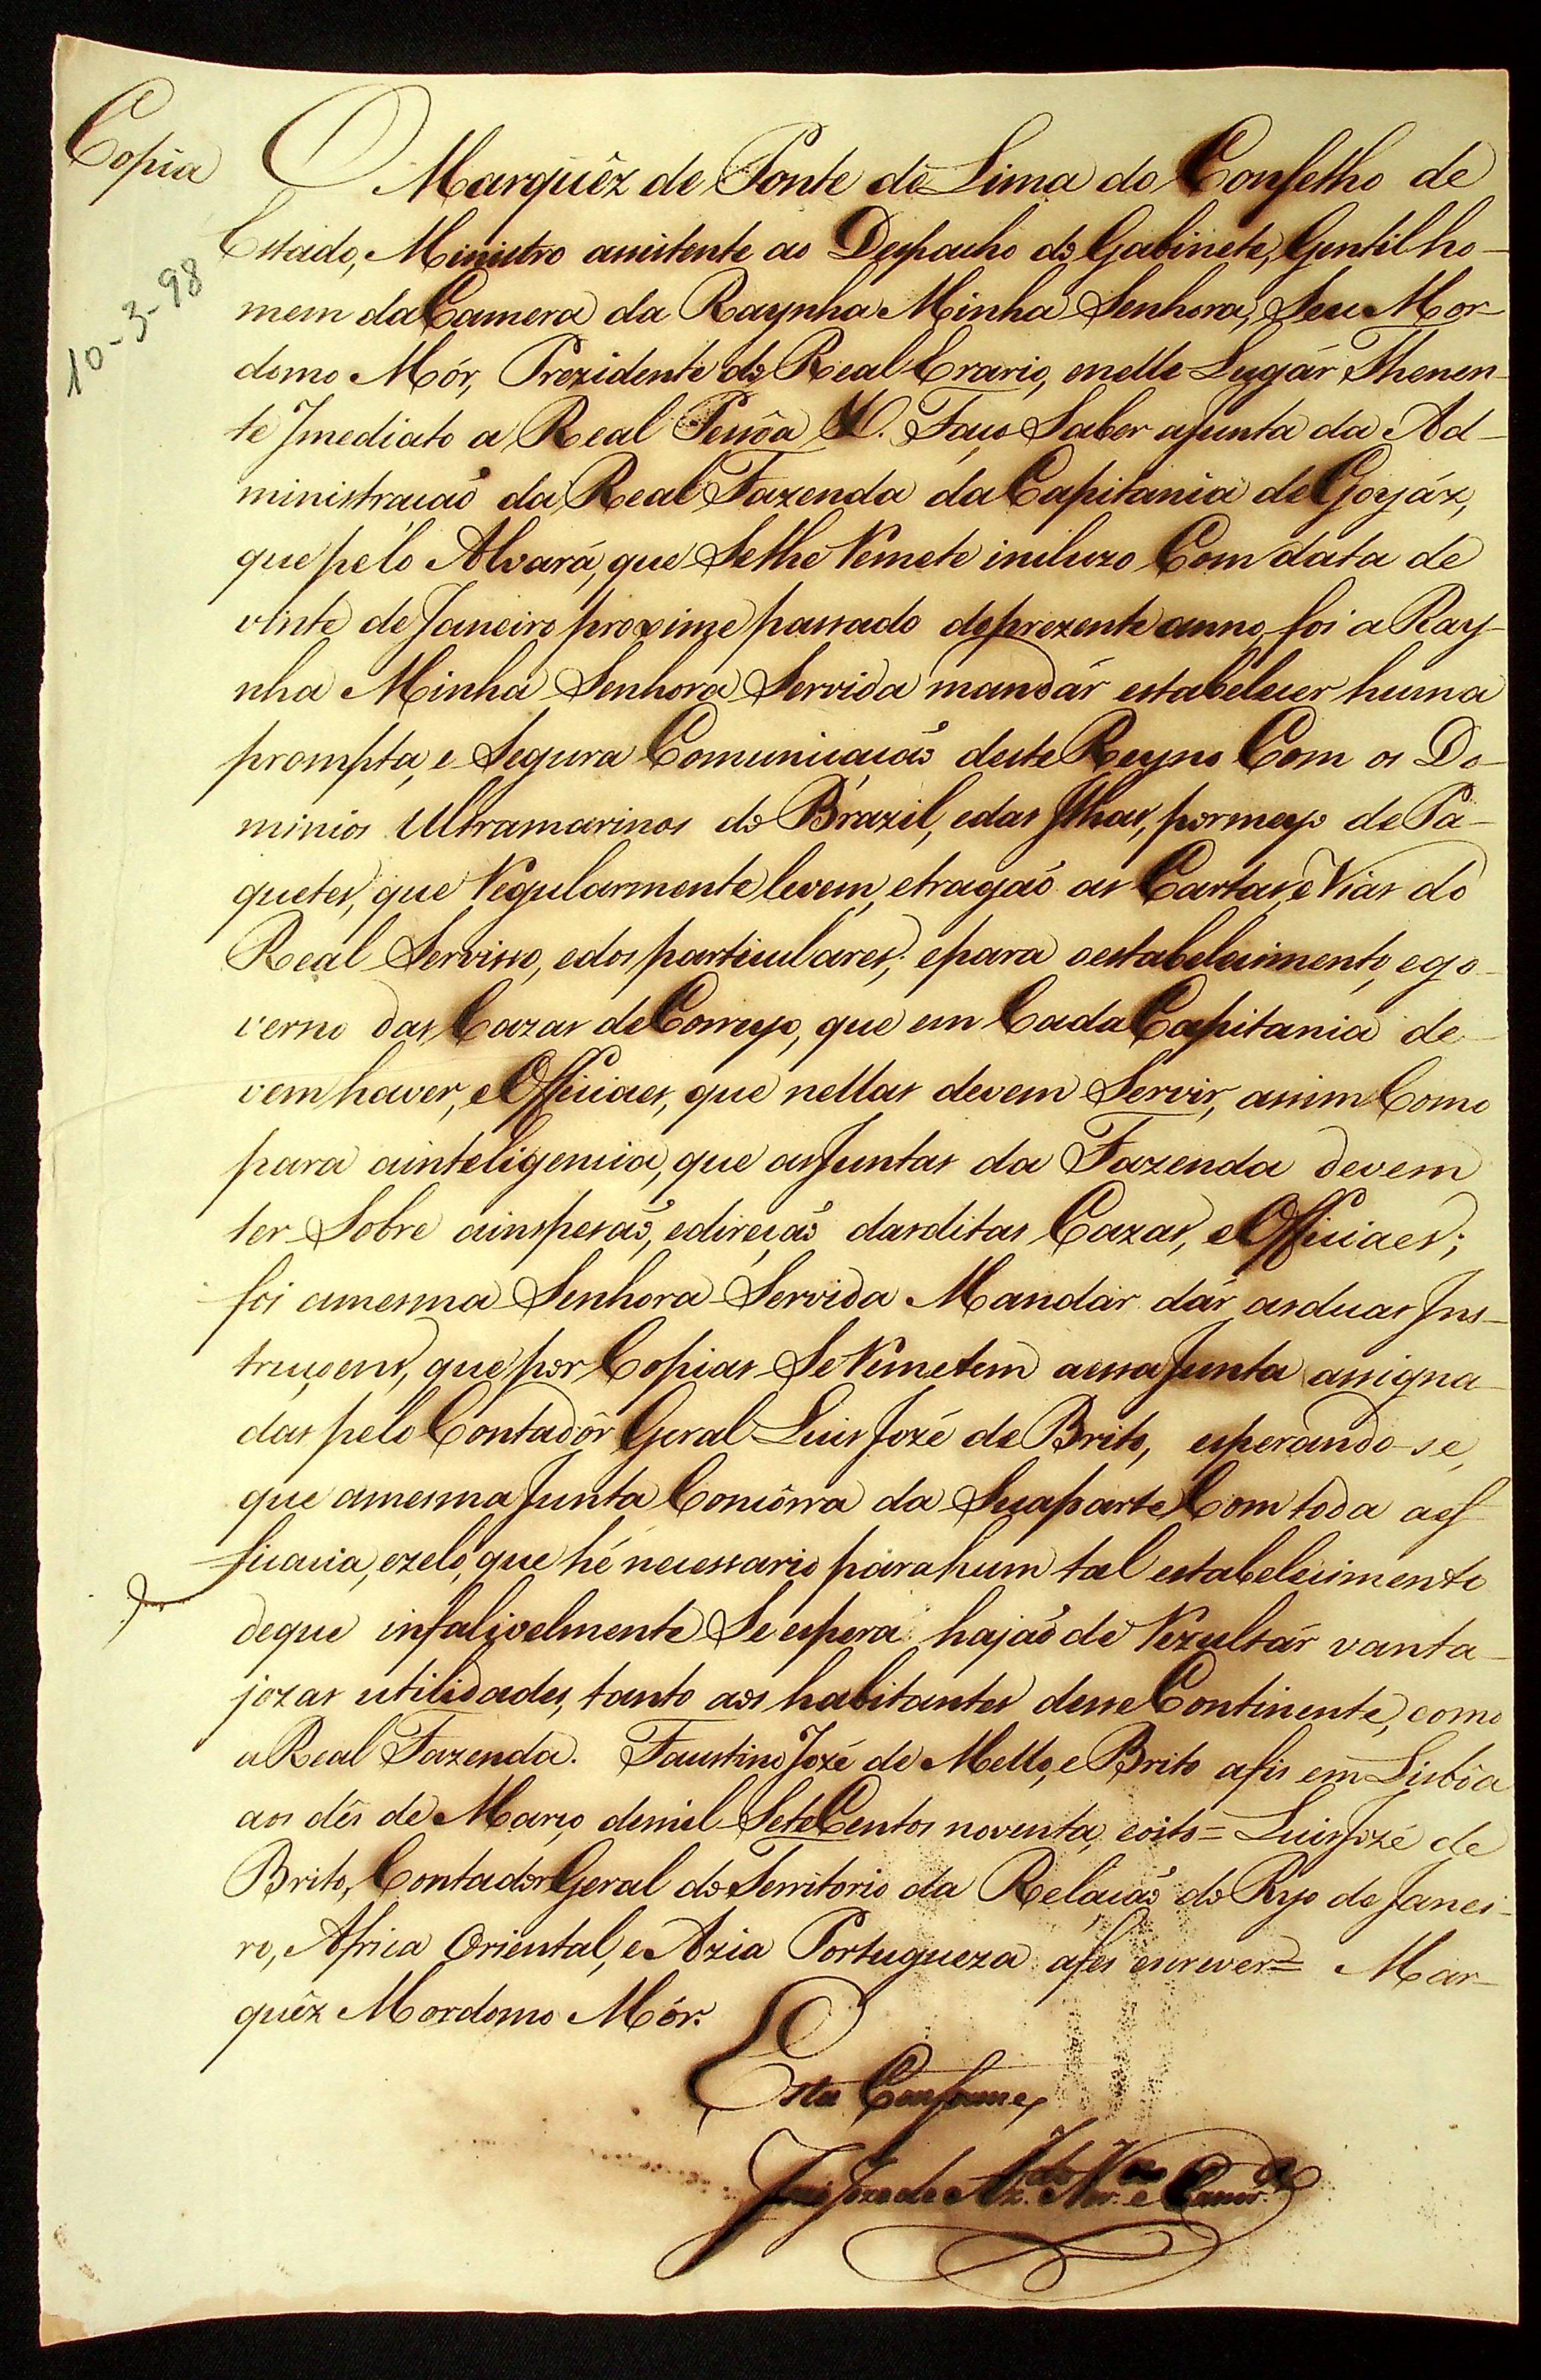 Copia
O Marquêz de Ponte de Lima do Conselho de
Estado, Ministro assistente ao Despacho do Gabinete, Gentil ho-
10-3-98
mem da Camera da Raynha Minha Senhora, Seu Mor-
domo Mór, Prezidente do Real Erario, enelle Lugár Thenen-
te Jmediato a Real Pessôa &. Faço Saber ajunta da Ad-
ministração da Real Fazenda da Capitania de Goyáz,
que pelo Alvará, que Selhe Remete incluzo Com data de
vinte de Janeiro proximo passado do prezente anno foi a Ray-
nha Minha Senhora Servida mandár estabelecer huma
prompta, e Segura Comunicação deste Reyno Com os Do-
minios Ultramarinos do Brazil, edas Jlhas, por meyo de Pa-
quetes, que Regularmente levem, etragão as Cartas, e Vias do
Real Servisso, edos particulares; epara oestabelecimento, ego-
verno das Cazas de Correyo, que em Cada Capitania de-
vem haver, eOfficiaes, que nellas devem Servir, assim Como
para ainteligencia, que asJuntas da Fazenda devem
ter Sobre ainspesão, edireção dasditas Cazas, eOfficiaes;
foi amesma Senhora Servida Mandár dár asduas Jns-
truçoens, que por Copias Se Remetem aessa Junta assigna-
das pelo Contadôr Geral Luis Jozé de Brito, esperando-se,
que amesma Junta Concôrra da Sua parte Com toda aef-
ficacia, ezelo, que hé necessario para hum tal estabelecimento
deque infalivelmente Se espera hajão de Rezultár vanta-
jozas utilidades, tanto aos habitantes desse Continente, como
a Real Fazenda. Faustino Jozé de Mello, e Brito afis em Lisbôa
aos dês de Março demil Sete Centos noventa, eoito= Luis Jozé de
Brito, Contador Geral do Territorio da Relação do Ryo de Janei-
ro, Africa Oriental, e Azia Portugueza afes escrever= Mar-
quêz Mordomo Mór.
Esta Conforme
Joze de Az.do